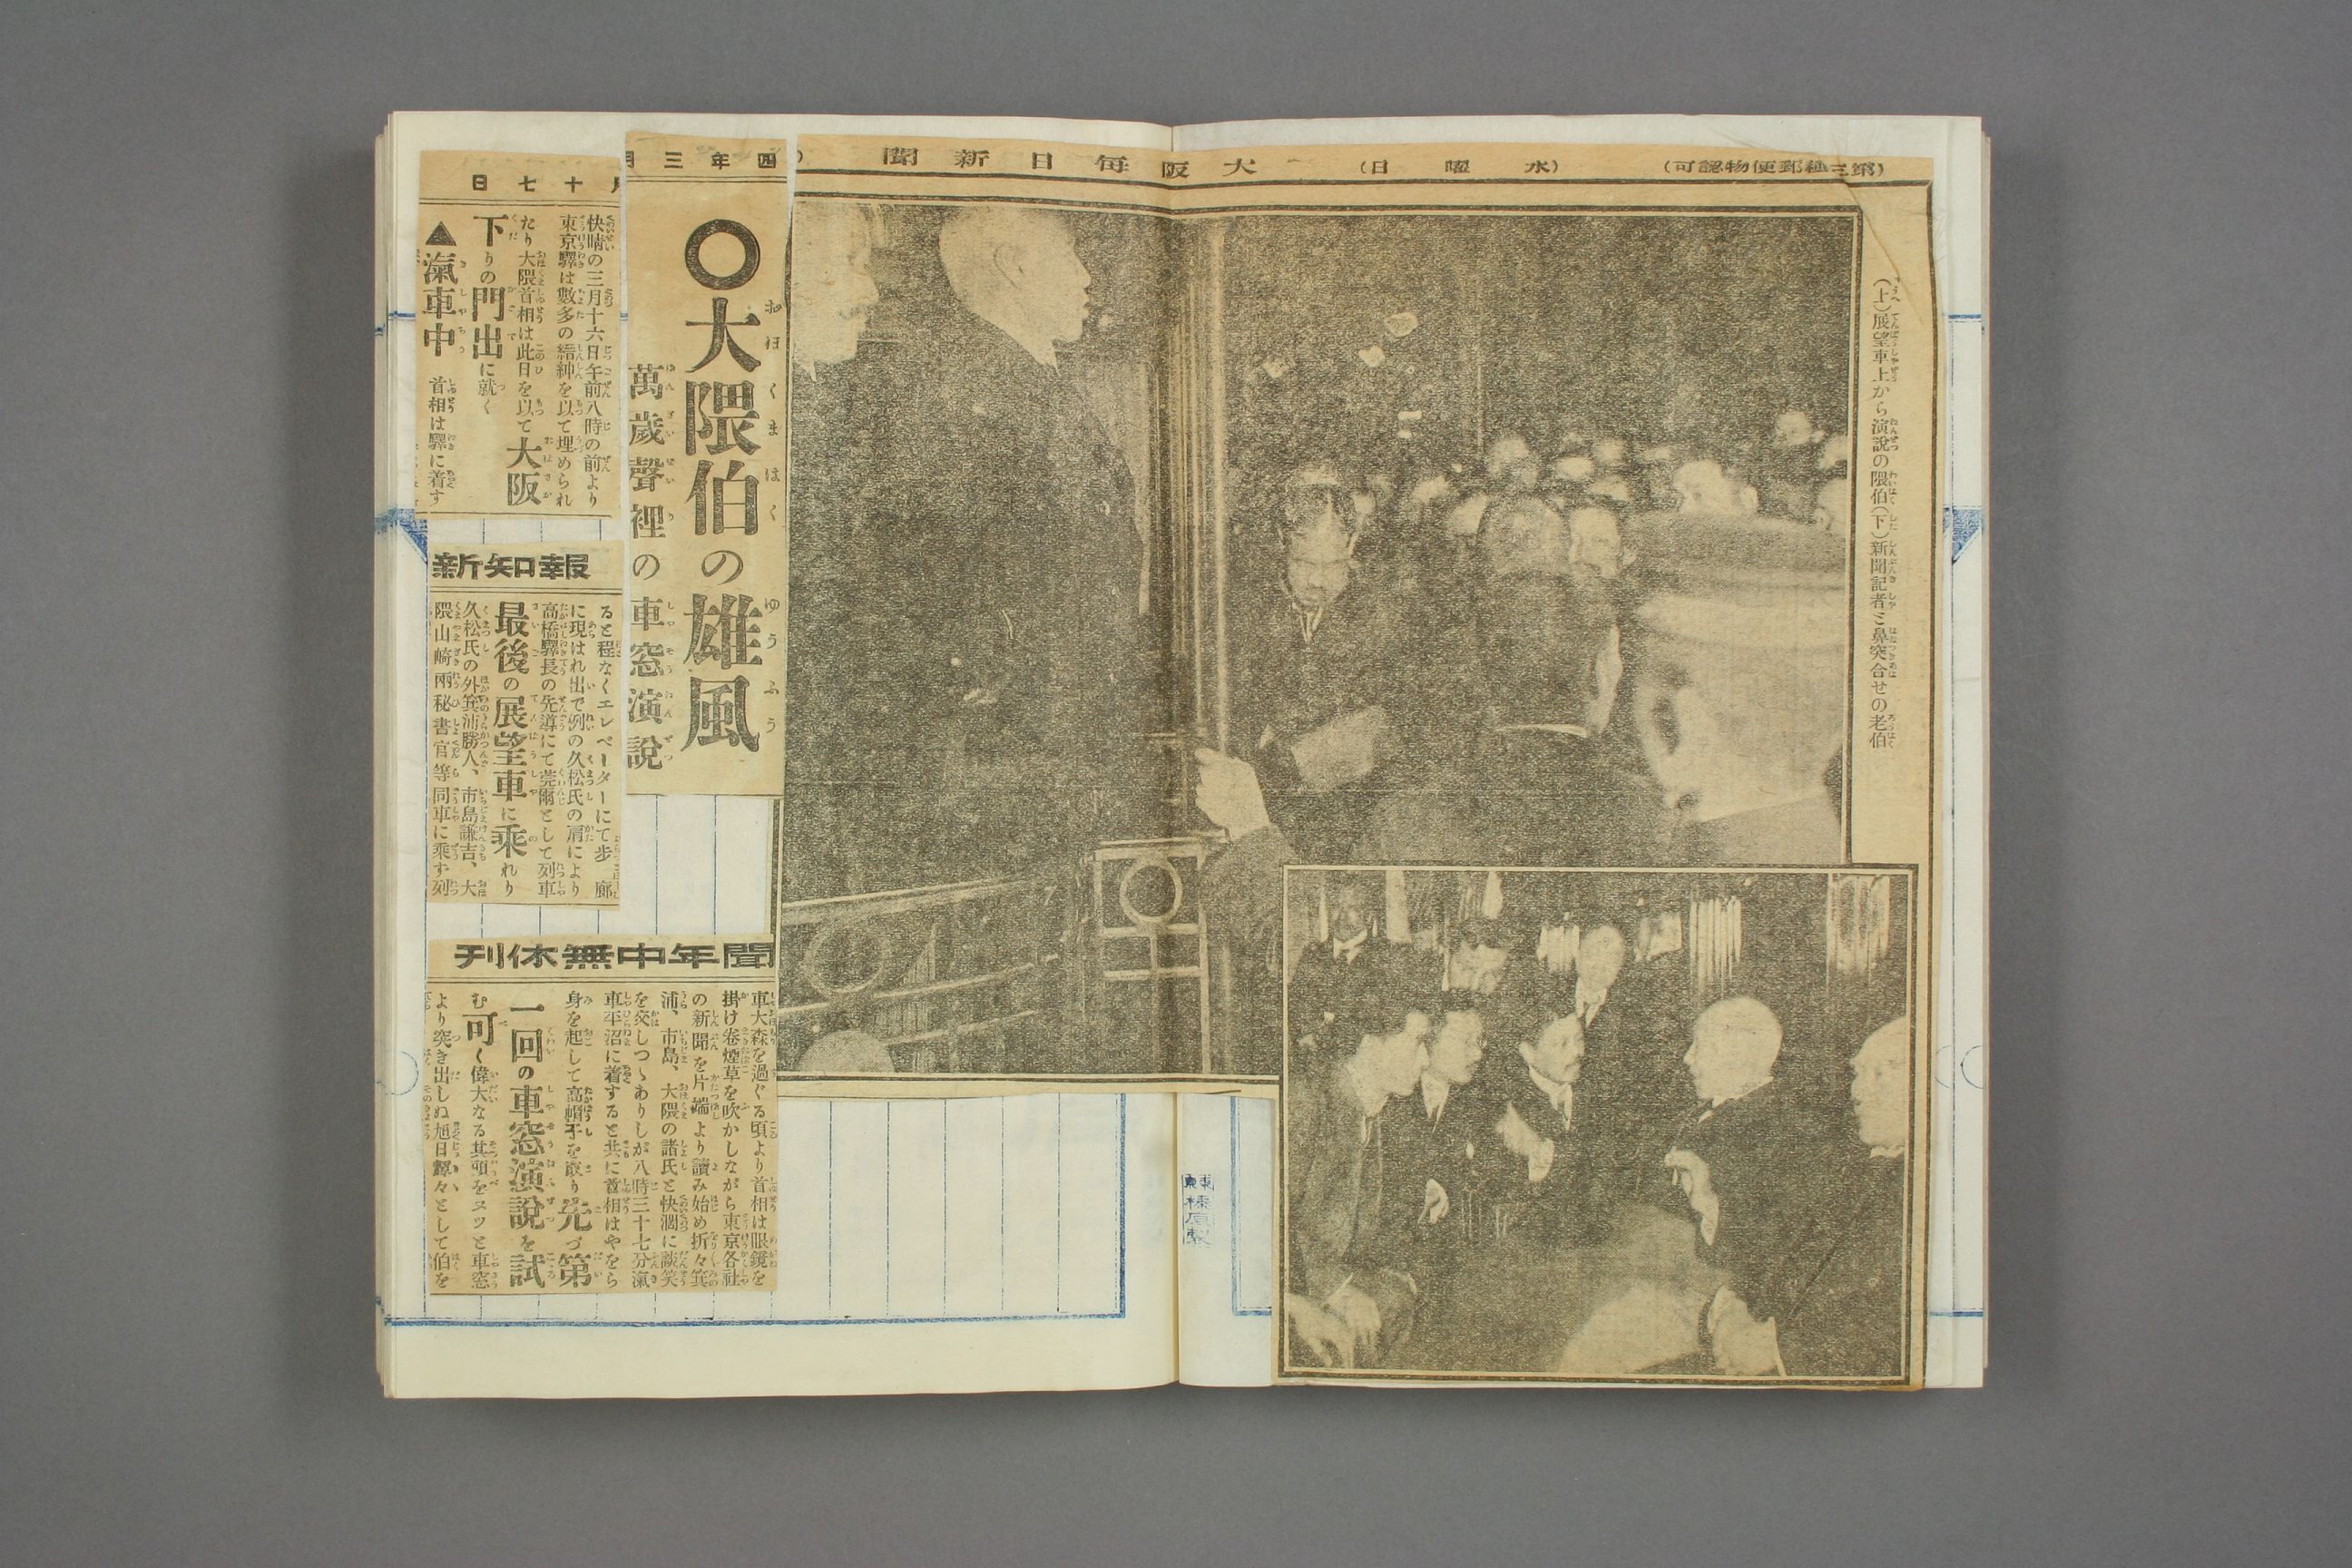 (第三種郵便物認可)
(水曜日)
大阪毎日新聞
(上)展望車上から演說の隈伯(下)新聞記者と鼻突合せの老伯
四年三月
〇大隈伯の雄風
萬歲聲裡の車窓演說
月十七日
快晴の三月十六日午前八時の前より
東京驛は數多の縉紳を以て埋められ
たり大隈首相は此日を以て大阪
下りの門出に就く
▲滊車中 首相は驛に着す
報知新
ると程なくエレベーターにて步廊
に現はれ出で例の久松氏の肩により
高橋驛長の先導にて莞爾として列車
最後の展望車に乘れり
久松氏の外箕浦勝人、市島謙吉、大
隈山崎兩秘書官等同車に乘す列
聞年中無休刊
車大森を過ぐる頃より首相は眼鏡を
掛け卷煙草を吹かしながら東京各社
の新聞を片端より讀み始め折々箕
浦、市島、大隈の諸氏と快濶に談笑
を交しつゝありしが八時三十七分滊
車平沼に着すると共に首相はやをら
身を起して高帽子を戴り先づ第
一回の車窓演說を試
む可く偉大なる其頭をヌツと車窓
より突き出しぬ旭日輝々として伯を
榛原製